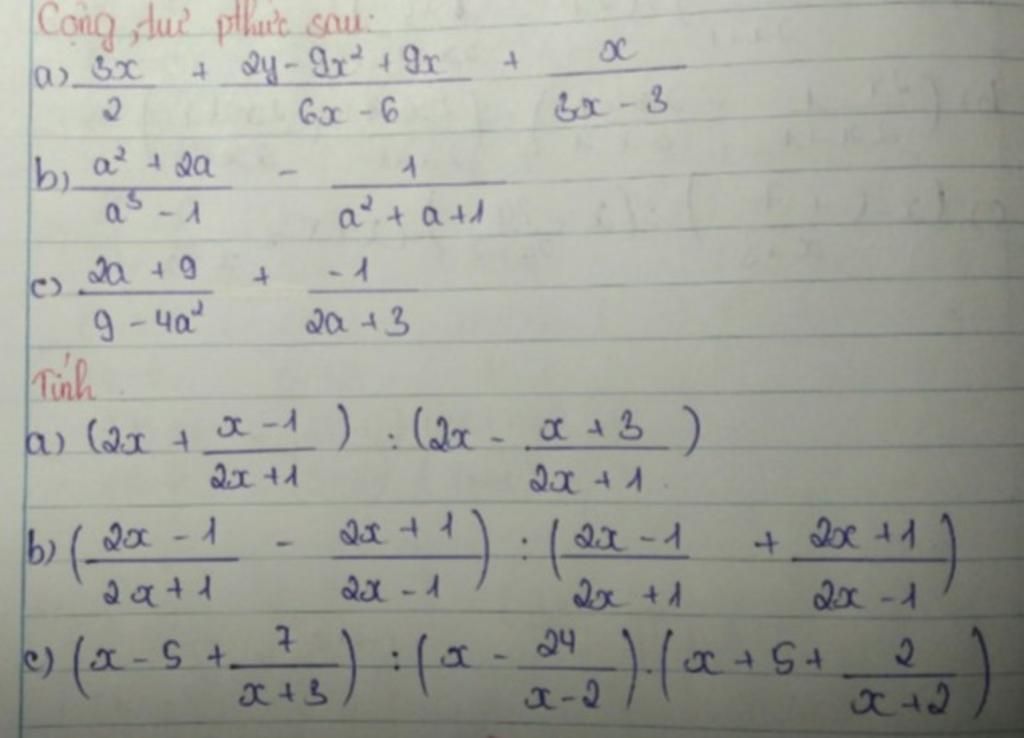 Cộng, trừ phthức sau:
a) 3x/2 + (2y - 9x² + 9x)/(6x - 6) + x/(3x - 3)
b) (a² + 2a)/(a³ - 1) - 1/(a² + a + 1)
c) (2a + 9)/(9 - 4a²) + (-1)/(2a + 3)
Tính
a) (2x + (x - 1)/(2x + 1)) : (2x - (x + 3)/(2x + 1))
b) ((2x - 1)/(2x + 1) - (2x + 1)/(2x - 1)) : ((2x - 1)/(2x + 1) + (2x + 1)/(2x - 1))
c) (x - 5 + 7/(x + 3)) : (x - 24/(x - 2)) . (x + 5 + 2/(x + 2))